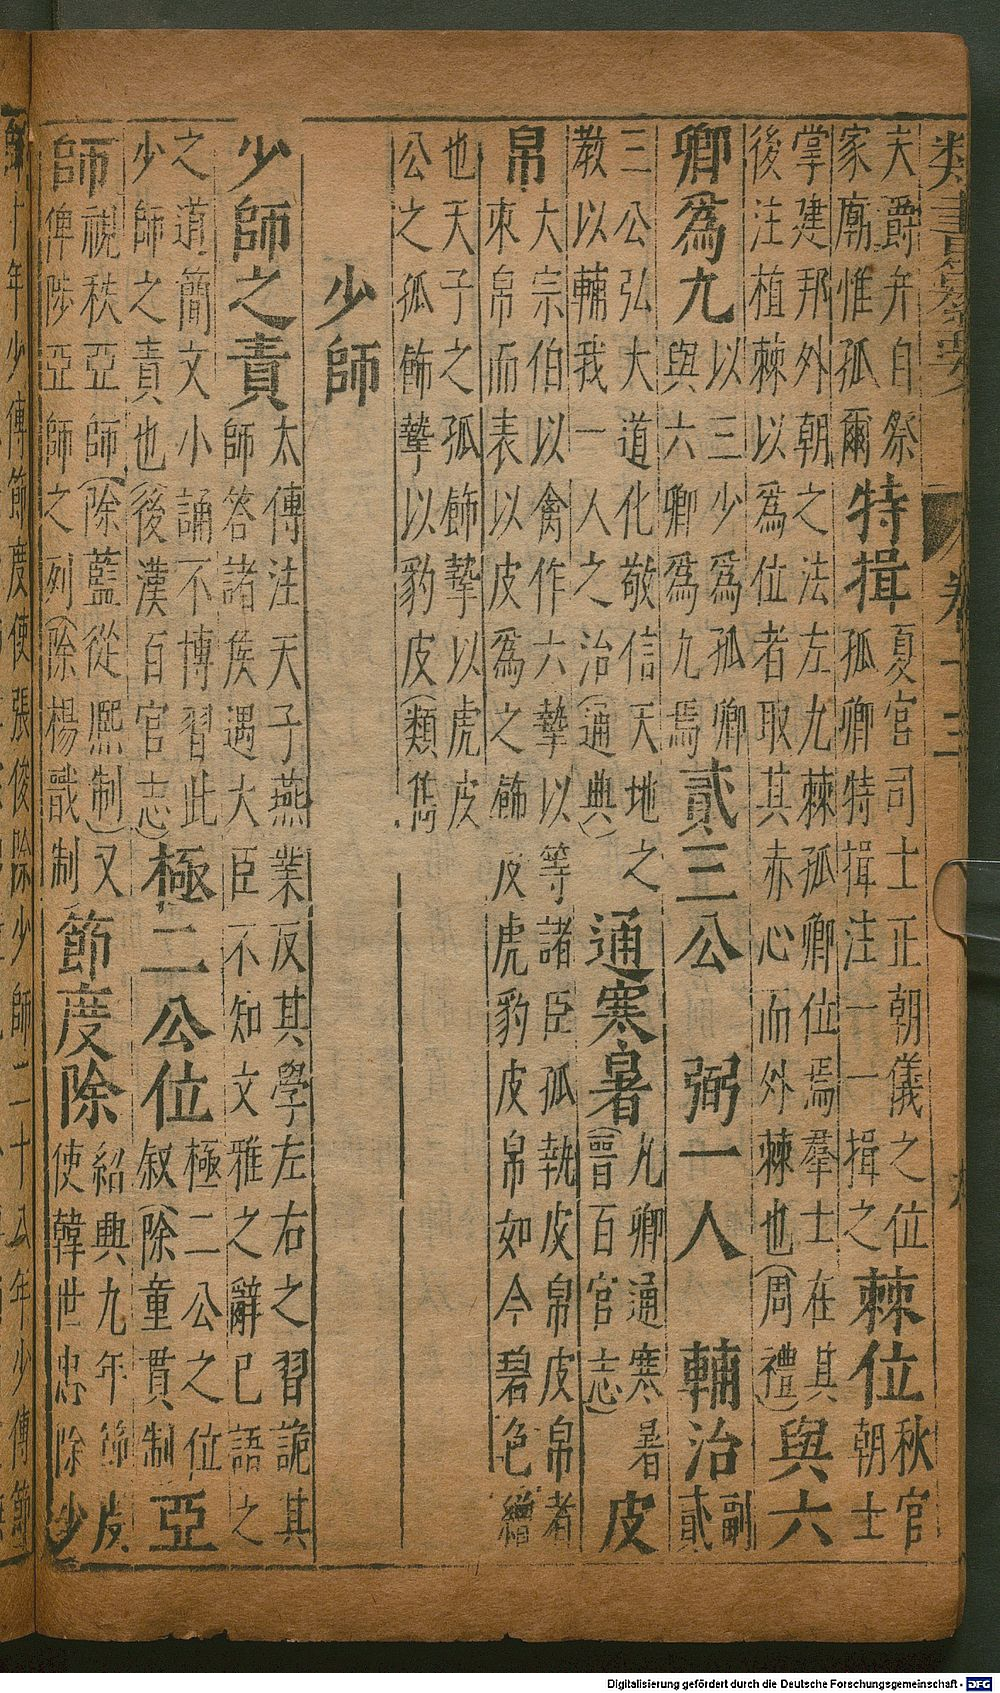 類書纂要 卷十三
夫爵弁自祭
家廟惟孤爾
特揖
夏官司士正朝儀之位
孤卿特揖注一一揖之
棘位
秋官
朝士
掌建邦外朝之法左九棘孤卿位焉羣士在其
後注植棘以為位者取其赤心而外棘也(周禮)
與六
卿為九
以三少為孤卿
與六卿為九焉
貳三公 弼一人 輔治
副
貳
三公弘大道化敬信天地之
教以輔我一人之治(通典)
通寒暑
九卿通寒暑
(晉百官志)
皮
帛
大宗伯以禽作六摯以等諸臣孤執皮帛皮帛者
束帛而表以皮為之飾皮虎豹皮帛如今碧色繒
也天子之孤飾摯以虎皮
公之孤飾摯以豹皮(類雋)
少師
少師之責
太傅注天子燕業反其學左右之習詭其
師答諸侯遇大臣不知文雅之辭已語之
之道簡文小誦不博習此
少師之責也(後漢百官志)
極二公位
極二公之位
叙(除童貫制
亞
師
視秩亞師(除藍從熙制)又
俾陟亞師之列(除楊戩制)
節度除
紹興九年節度
使韓世忠除少
十年少傅節度使張俊除少師二十八年少傅節
Digitalisierung gefördert durch die Deutsche Forschungsgemeinschaft - DFG